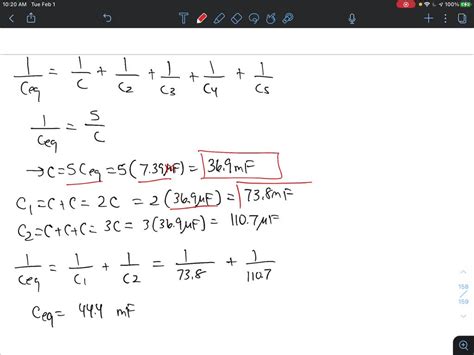 10:20 AM Tue Feb 1
100%
1/Ceq = 1/C + 1/C2 + 1/C3 + 1/C4 + 1/C5
1/Ceq = 5/C
→ C = 5Ceq = 5(7.39μF) = 36.9mF
C1 = C + C = 2C = 2(36.9μF) = 73.8mF
C2 = C + C + C = 3C = 3(36.9μF) = 110.7μF
1/Ceq = 1/C1 + 1/C2 = 1/73.8 + 1/110.7
Ceq = 44.4 mF
158
/
159